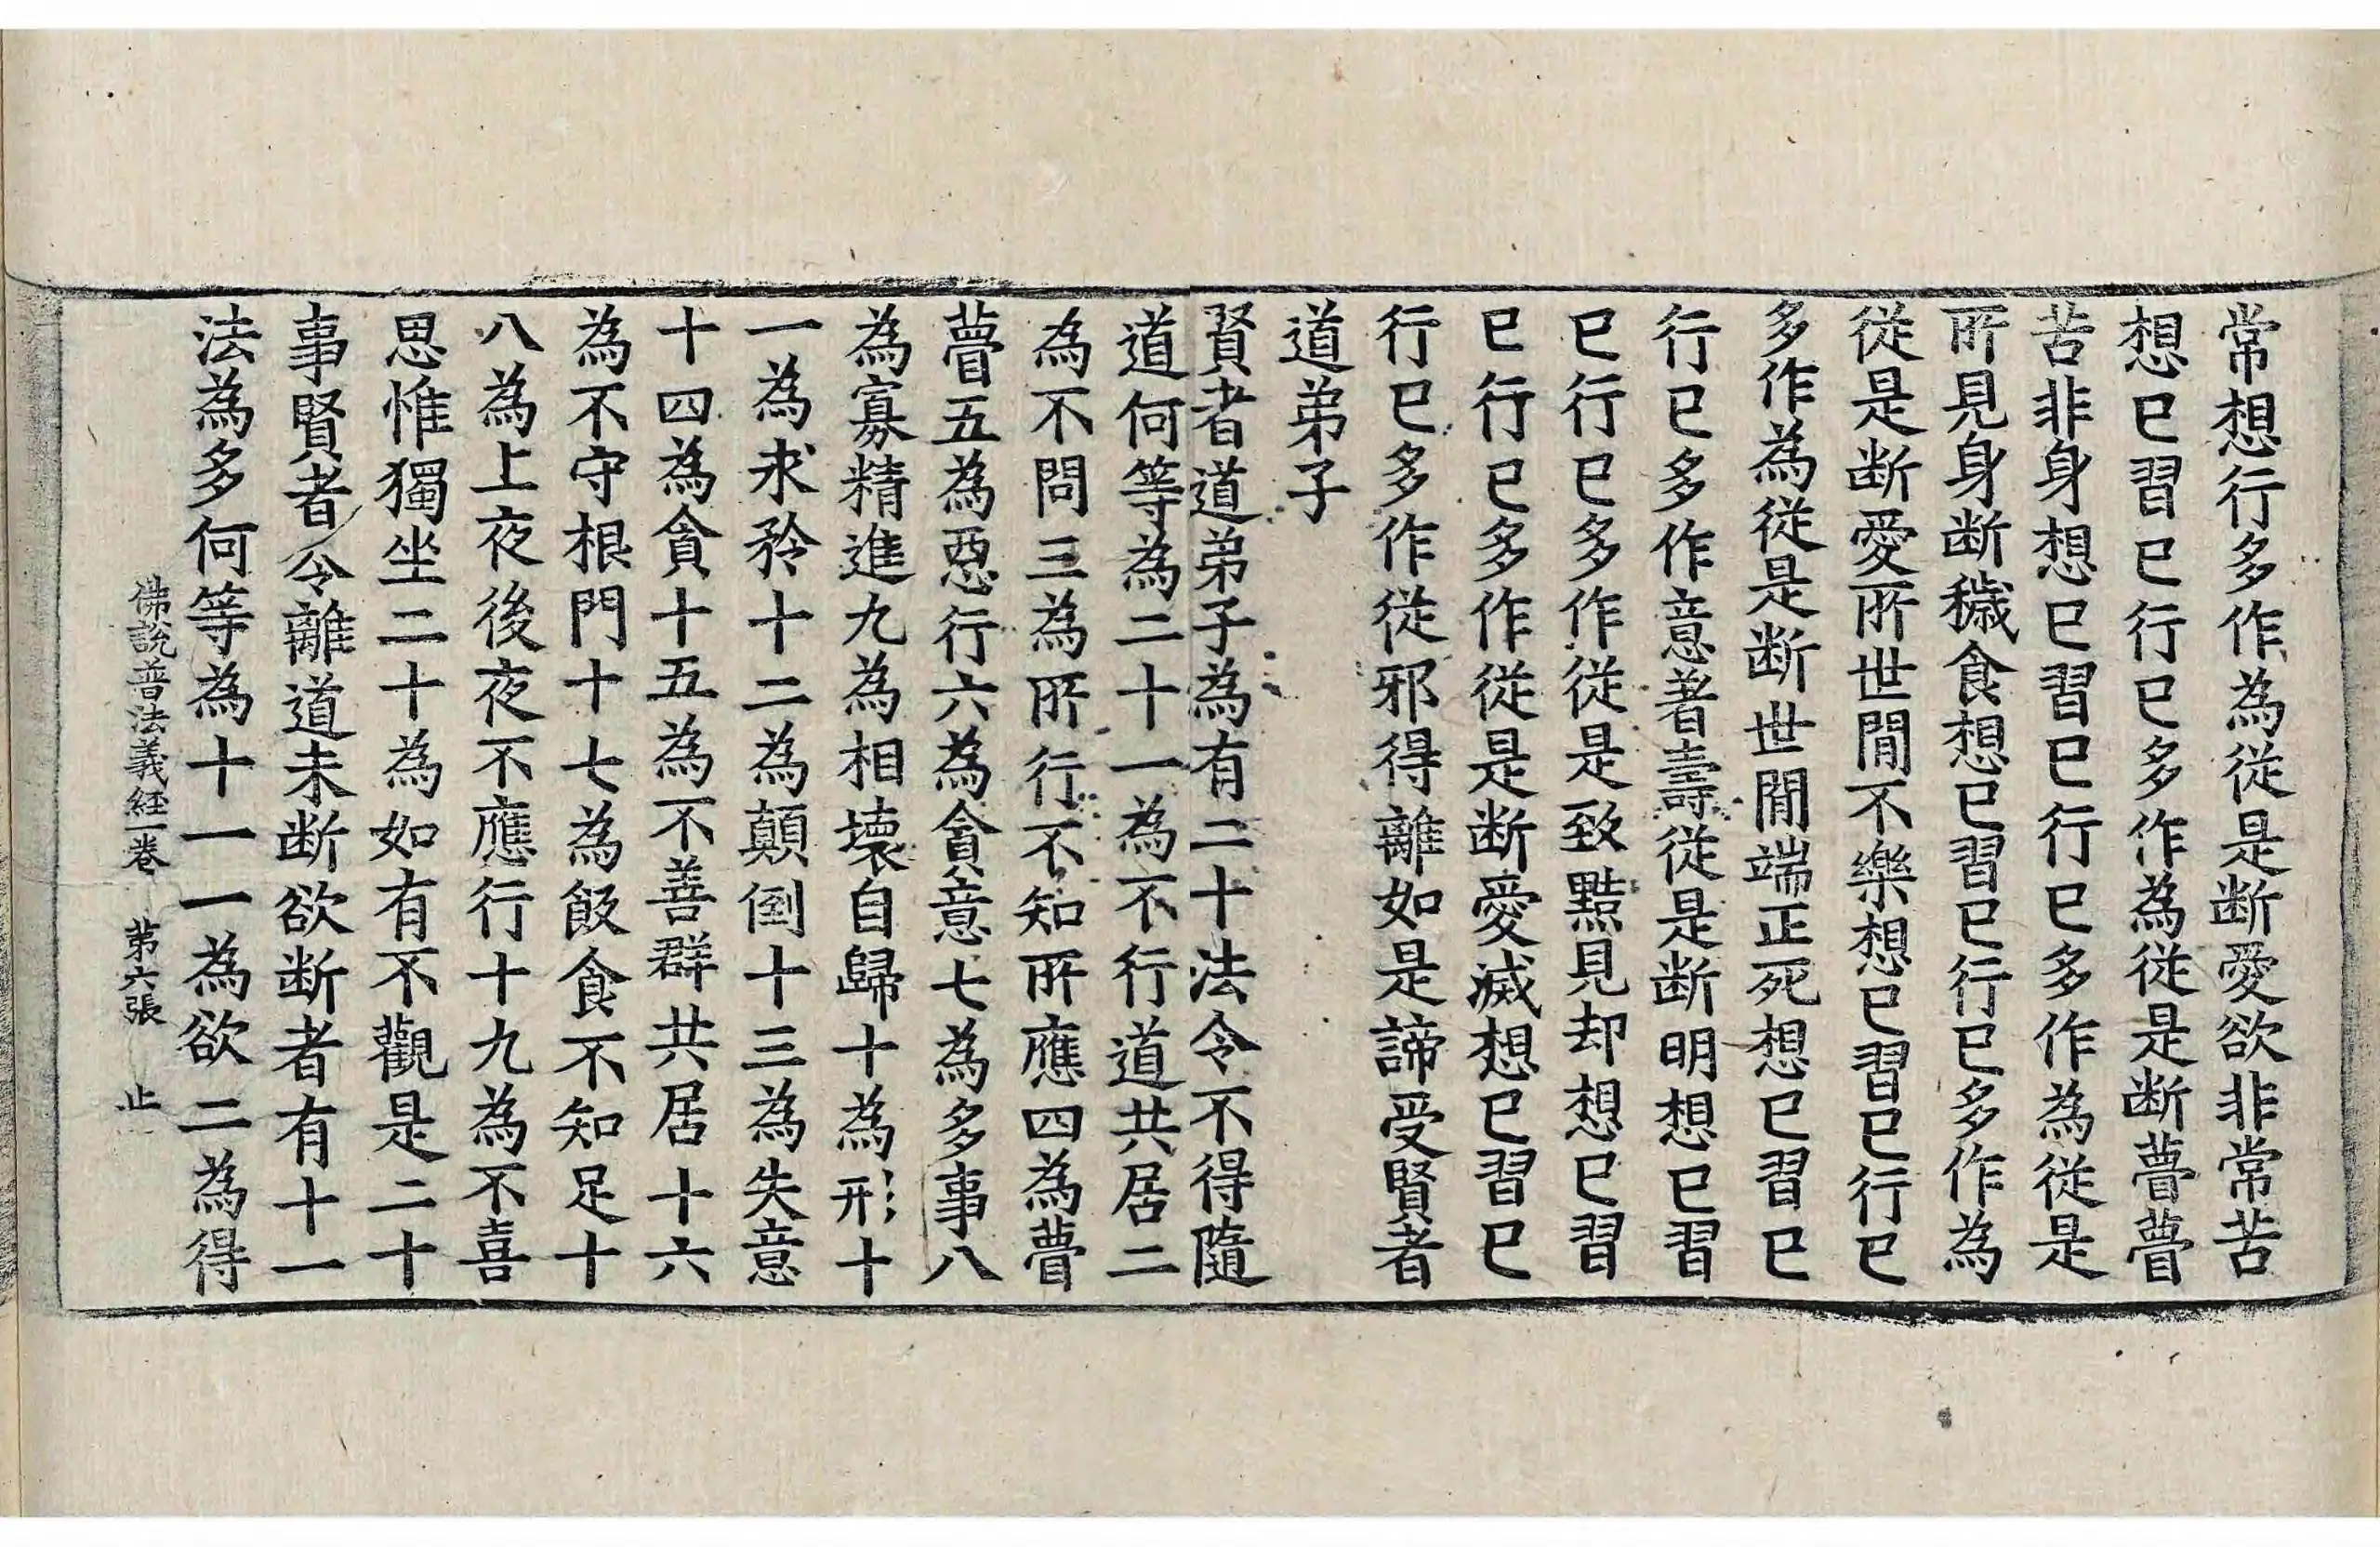 常想行多作為從是断愛欲非常苦
想巳習巳行巳多作為從是断瞢瞢
苦非身想巳習巳行巳多作為從是
所見身断穢食想巳習巳行巳多作為
從是断愛所世間不樂想巳習巳行巳
多作為從是断世間端正死想巳習巳
行巳多作意著壽從是断明想巳習
巳行巳多作從是致黠見却想巳習
巳行巳多作從是断愛滅想巳習巳
行巳多作從邪得離如是諦受賢者
道弟子
賢者道弟子為有二十法令不得隨
道何等為二十一為不行道共居二
為不問三為所行不知所應四為瞢
瞢五為惡行六為貪意七為多事八
為寡精進九為相壞自歸十為形十
一為求矜十二為顛倒十三為失意
十四為貪十五為不善群共居十六
為不守根門十七為飯食不知足十
八為上夜後夜不應行十九為不喜
思惟獨坐二十為如有不觀是二十
事賢者令離道未断欲断者有十一
法為多何等為十一一為欲二為得
佛說普法義經一卷 苐六張 止